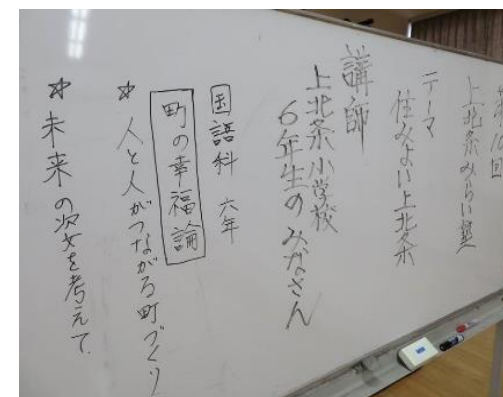 第10回
上北条みらい塾
テーマ
住みよい上北条
講師
上北条小学校
6年生のみなさん
国語科 六年
町の幸福論
☆ 人と人がつながる町づくり
☆ 未来の姿を考えて